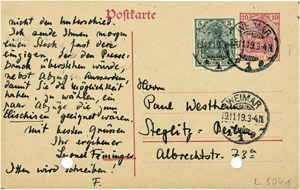 Postkarte
nicht den Unterschied.
Ich sende Ihnen morgen
einen Stock, fast der
einzigen, der den Presse-
Druck überstehen würde,
nebst Abzug. Ausserdem,
damit Sie die Möglichkeit
haben zu wählen, ein
paar Abzüge die zum
Clischieren geeignet wären.
mit besten Grüssen
Ihr ergebener
Leonel Feininger
Itten wird schreiben.
F.
5
10
WEIMAR
19.11.19.3-4N.
1
WEIMAR
19.11.19.3-4N.
Herrn
Paul Westheim
Steglitz-Berlin
Albrechtstr. 73a
L 5041